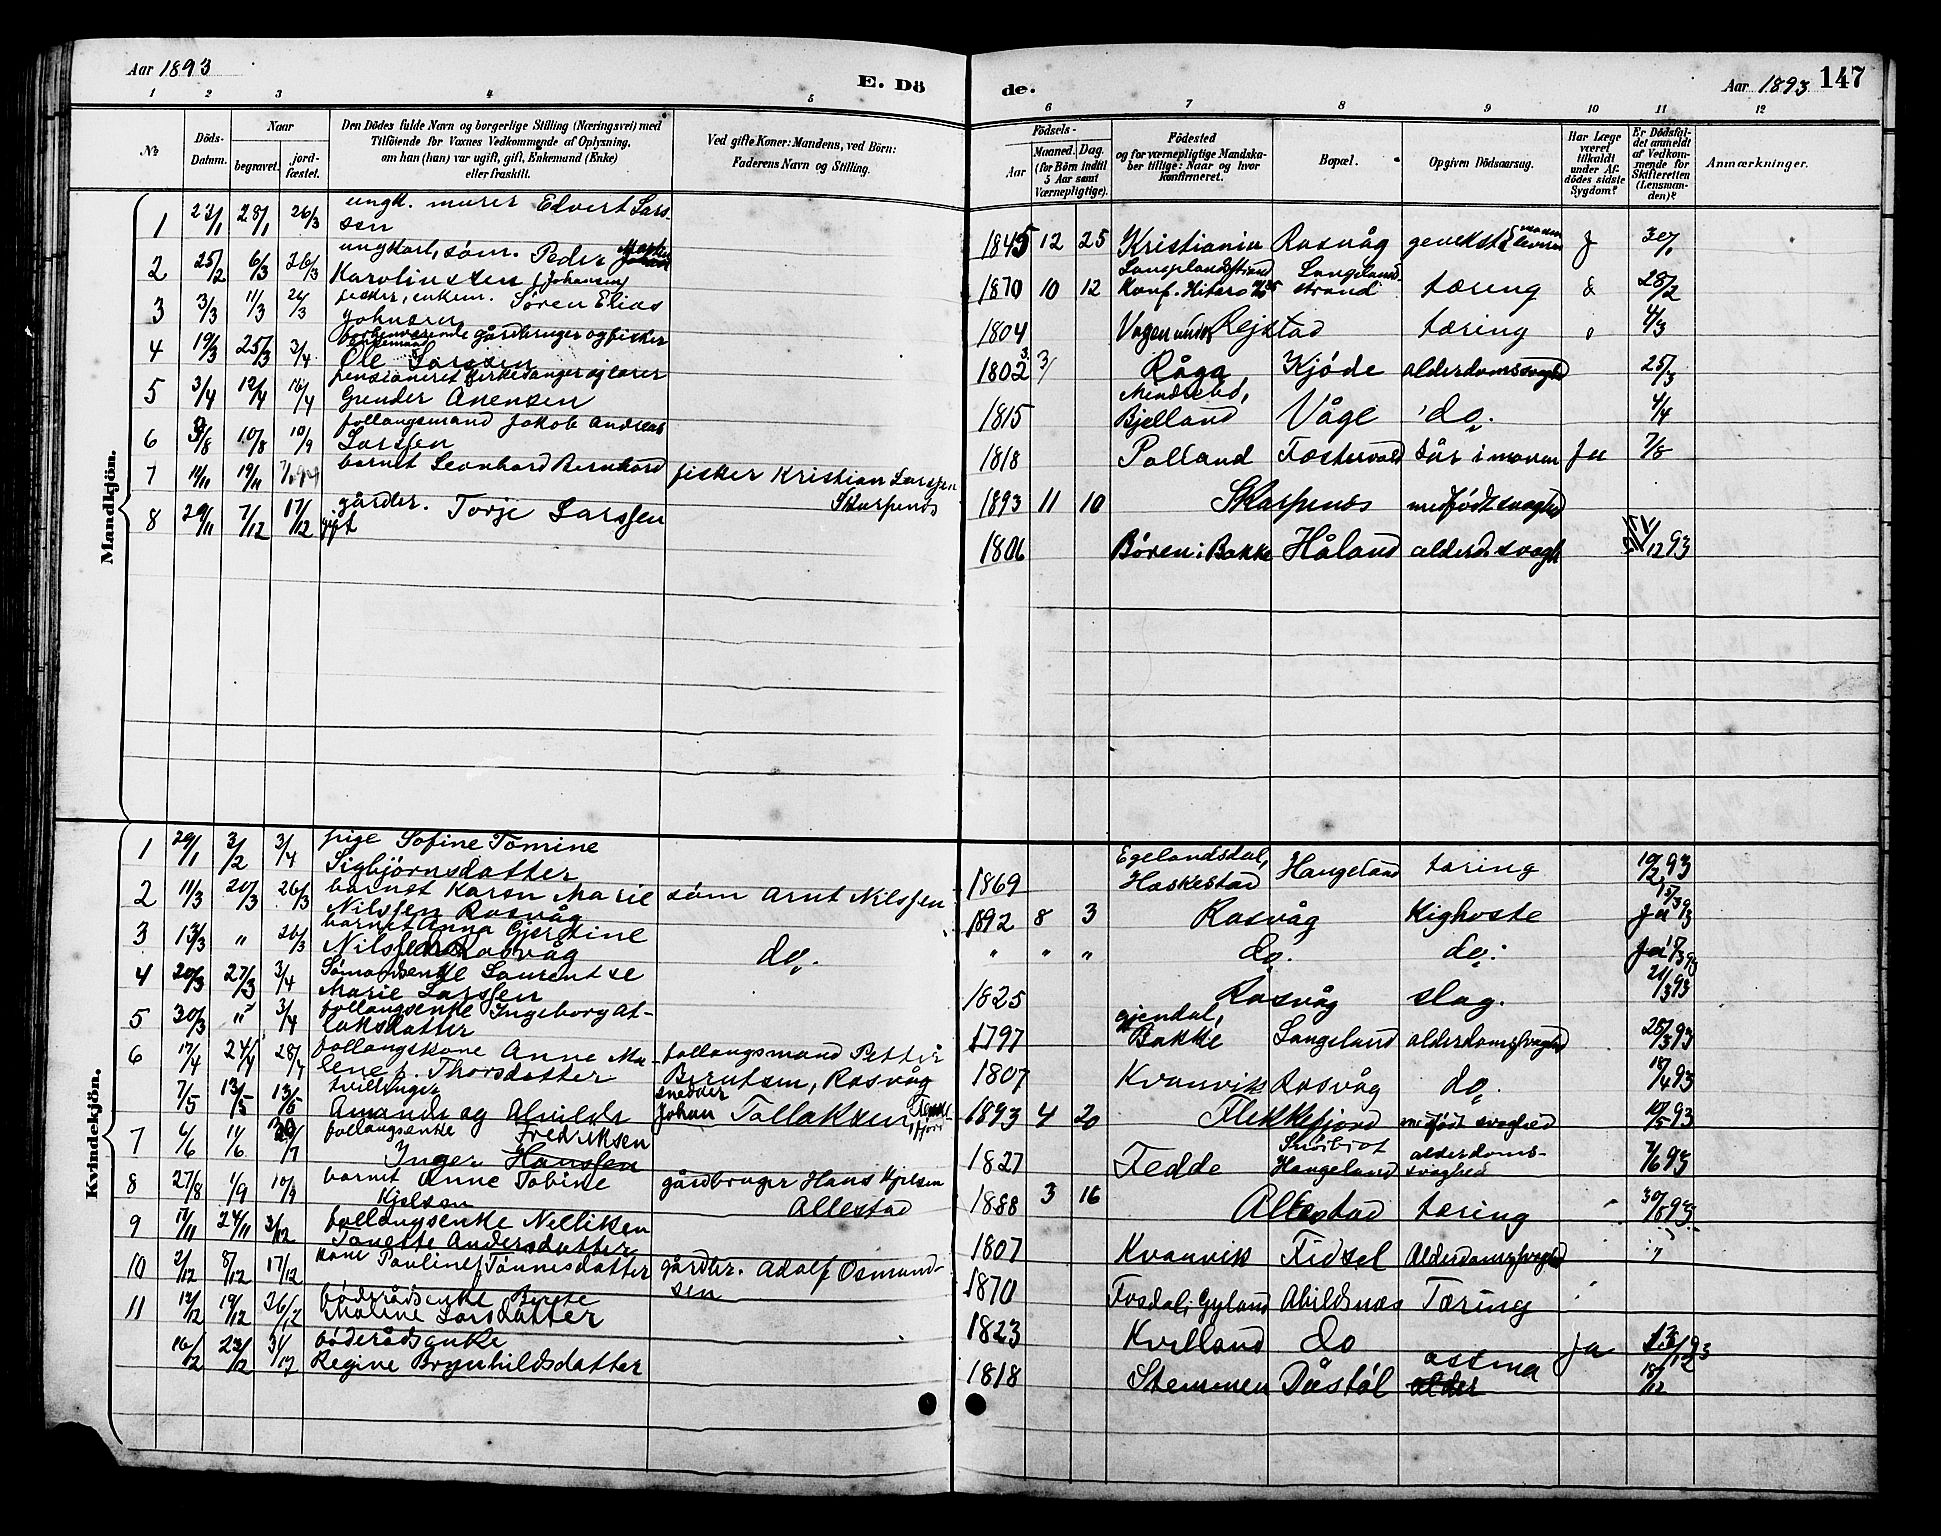 Aar 1893
E. Dö
de.
Aar 1893
147
1 2 3 4 5 6 7 8 9 10 11 12
№
Döds-Datum.
Naar
begravet.
jord-fæstet.
Den Dödes fulde Navn og borgerlige Stilling (Næringsvei) med
Tilföiende for Voxnes Vedkommende af Oplysning,
om han (han) var ugift, gift, Enkemand (Enke)
eller fraskilt.
Ved gifte Koner: Mandens, ved Börn:
Faderens Navn og Stilling.
Födsels-
Aar
Maaned. Dag.
(for Börn indtil
5 Aar samt
Værnepligtige).
Födested
og for værnepligtige Mandska-
ber tillige: Naar og hvor
konfirmeret.
Bopæl.
Opgiven Dödsaarsag.
Har Læge
været
tilkaldt
under Af-
dödes sidste
Sygdom?
Er Dödsfal-
det anmeldt
af Vedkom-
mende for
Skifteretten
(Lensman-
den)?
Anmærkninger.
Mandkjön.
1 23/1 28/1 26/3 ungk. murer Edvert Lars-
sen 1845 12 25 Kristiania Rasvåg 30/1
2 25/2 6/3 26/3 ungkarl, søm. Peder
Karolinsten (Johansen) 1870 10 12 Langelands strand tæring 28/2
3 3/3 11/3 26/3 fisker, enkem. Søren Elias
Johnsen 1804 Rejstad tæring 4/3
4 19/3 25/3 3/4 forhenværende gårdbruger og fisker
Ole Larssen 1802 3 3/ Råga Kjøde alderdomssvaghed 25/3
5 3/4 12/4 16/4 pensioneret kirkesanger og lærer
Gunder Anensen 1815 Bjelland Våge do. 4/4
6 3/8 10/8 10/9 follaugsmand Jakob Andreas
Larssen 1818 Polland Fæstervold Sår i maven Ja 7/8
7 14/11 19/11 barnet Leonhard Bernhard fisker Kristian Larssen
Skarpenes 1893 11 10 Skarpenes medfødt svaghed
8 29/11 7/12 17/12 gårdbr. Torje Larssen
gift 1806 Børen i Bakke Håland alderds svagh 12 93
Kvindekjön.
1 29/1 3/2 3/4 pige Sofine Tomine
Sigbjørnsdatter 1869 Egelandsdal, Haskestad Hangeland tæring 10/2 93
2 11/3 20/3 26/3 barnet Karen Marie søm Arnt Nilssen
Nilssen Rasvåg 1892 8 3 Rasvåg Kighoste Ja
3 13/3 " 26/3 barnet Anna Gjerdine
Nilssen Rasvåg do. " " " do. do. Ja
4 20/3 27/3 3/4 Sømandsenke Laurentse
Marie Larssen 1825 Rasvåg slag. 21/3 93
5 30/3 " 3/4 follaugsenke Ingeborg At-
laksdatter 1797 gjendal, Bakke Langeland alderdomssvaghed 25/3 93
6 17/4 24/4 28/4 follaugskone Anne Ma- follaugsmand Petter
lene f. Thorsdatter Berntsen, Rasvåg 1807 Kvanvik Rasvåg do. 18/4 93
7/5 13/5 13/5 tvillinger snedker
Amanda og Alvilde Johan Tollaksen 1893 4 20 Flekkefjord medfødt svaghed 10/5 93
7 4/6 11/6 follaugsenke Fredriksen
Inger Hanssen 1827 Fedde Hangeland alderdoms-
svaghed 7/6 93
8 27/8 1/9 10/9 barnet Anne Tobine gårdbruger Hans Kjelsen
Kjelsen Allestad 1888 3 16 Allestad tæring 30/8 93
9 17/11 24/11 3/12 follaugsenke Nilliken
Tonette Andersdatter 1807 Kvanvik Fidsel Alderdomssvaghed
10 2/12 8/12 17/12 kone Pauline f. Tönnesdatter gårdbr. Adolf Osmund-
sen 1870 Fosdal, Gyland Abildnæs Tæring
11 12/12 19/12 26/12 føderådsenke Berte
Maline Larsdatter 1823 Kvelland do Ja
16/12 23/12 31/12 føderådsenke
Regine Brynhildsdatter 1818 Stemmen Dåstøl astma
alder 18/12